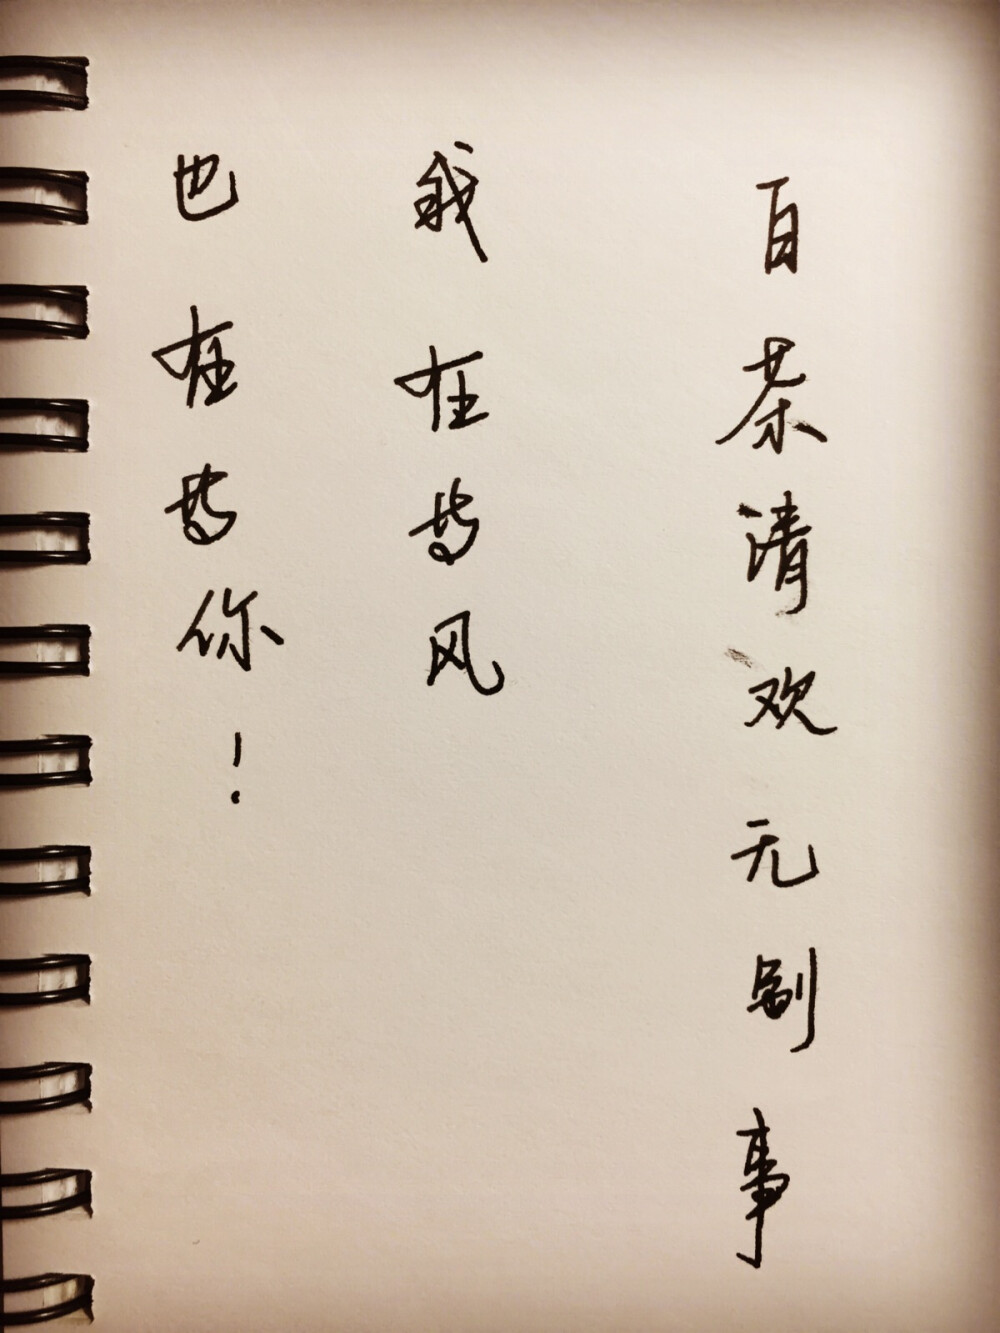 百茶清欢无别事
我在等风
也在等你！